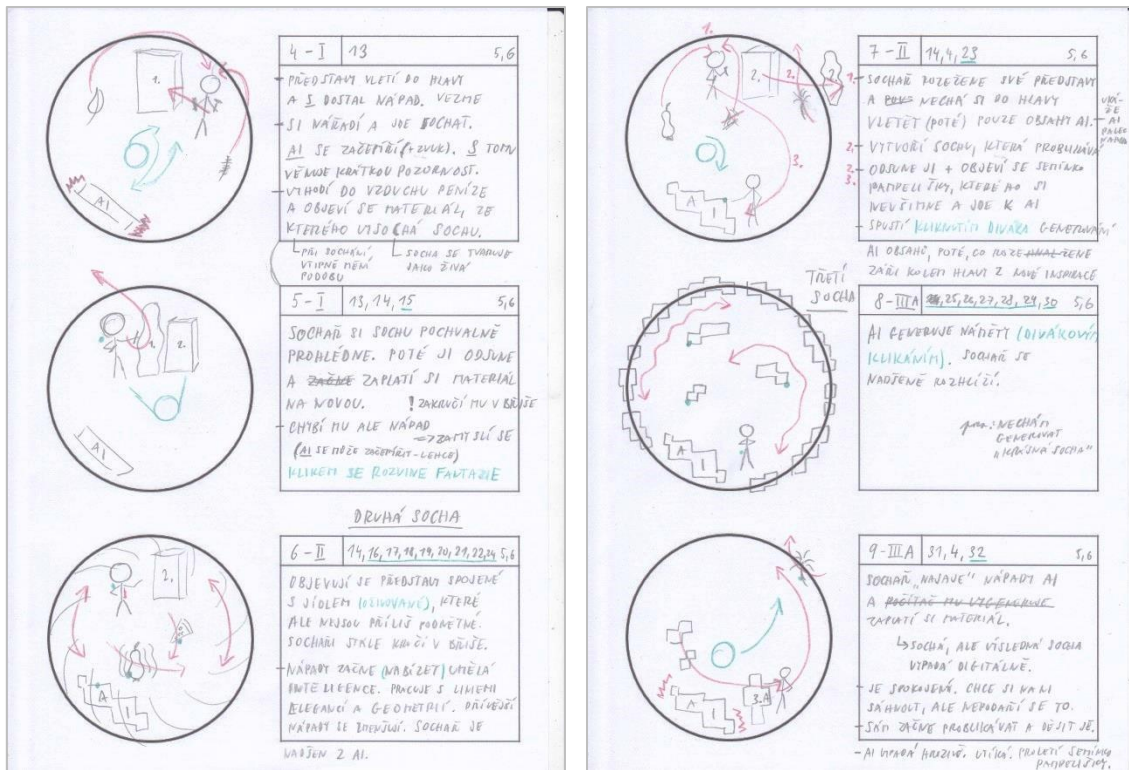 4 - I 13 5,6
PŘEDSTAVY VLETÍ DO HLAVY
A S DOSTAL NÁPAD. VEZME
SI NÁŘADÍ A JDE SOCHAT.
AI SE ZAČEMÝŘÍ (+ZVUK). S TOMU
VĚNUJE KRÁTKOU POZORNOST.
VYHODÍ DO VZDUCHU PENÍZE
A OBJEVÍ SE MATERIÁL, ZE
KTERÉHO VYSOCHÁ SOCHU.
PŘI SOCHÁNÍ
VTIPNĚ MĚNÍ
PODOBU
SOCHA SE TVARUJE
JAKO ŽIVÁ
1.
AI
5 - I 13, 14, 15 5,6
SOCHAŘ SI SOCHU POCHVALNĚ
PROHLÉDNE. POTÉ JI ODSUNE
A ZAČNE ZAPLATÍ SI MATERIÁL
NA NOVOU. ! ZAKRUČÍ MU V BŘIŠE
CHYBÍ MU ALE NÁPAD
=> ZAMYSLÍ SE
(AI SE MŮŽE - LEHCE)
KLIKEM SE ROZVINE FANTAZIE
1. 2.
AI
DRUHÁ SOCHA
6 - II 14, 16, 17, 18, 19, 20, 21, 22, 24 5,6
OBJEVUJÍ SE PŘEDSTAVY SPOJENÉ
S JÍDLEM (OŽIVOVANÉ), KTERÉ
ALE NEJSOU PŘÍLIŠ PODNĚTNÉ.
SOCHAŘI STÁLE KRUČÍ V BŘIŠE.
NÁPADY ZAČNE (NABÍZET) UMĚLÁ
INTELIGENCE. PRACUJE S LINIEMI
ELEGANCÍ A GEOMETRIÍ. DŘÍVĚJŠÍ
NÁPADY SE ZMENŠUJÍ. SOCHAŘ JE
NADŠEN Z AI.
2.
A I
7 - II 14, 4, 23 5,6
1. SOCHAŘ ROZEŽENE SVÉ PŘEDSTAVY
A NECHÁ SI DO HLAVY
VLETĚT (POTÉ) POUZE OBSAHY AI.
UKÁŽE
AI
PALEC
NAHORU
2. VYTVOŘÍ SOCHU, KTERÁ PROBLIKÁVÁ
2. ODSUNE JI + OBJEVÍ SE SEMÍNKO
3. PAMPELIŠKY, KTERÉHO SI
NEVŠIMNE A JDE K AI
SPUSTÍ KLIKNUTÍM DIVÁKA GENEROVÁNÍ
AI OBSAHŮ, POTÉ, CO ROZEŽENE
ZÁŘI KOLEM HLAVY Z NOVÉ INSPIRACE
1. 2. 2. 2. 3.
A I
TŘETÍ
SOCHA
8 - IIIA 25, 26, 27, 28, 29, 30 5,6
AI GENERUJE NÁMĚTY (DIVÁKOVÝM
KLIKÁNÍM). SOCHAŘ SE
NADŠENĚ ROZHLÍŽÍ.
pozn.: NECHÁM
GENEROVAT
"KRÁSNÁ SOCHA"
A I
9 - III.A 31, 4, 32 5,6
SOCHAŘ "NASAJE" NÁPADY AI
A POČÍTAČ MU VYGENERUJE
ZAPLATÍ SI MATERIÁL.
SOCHÁ, ALE VÝSLEDNÁ SOCHA
VYPADÁ DIGITÁLNĚ.
JE SPOKOJENÝ. CHCE SI NA NI
SÁHNOUT, ALE NEPODAŘÍ SE TO.
SÁM ZAČNE PROBLIKÁVAT A DĚSIT SE.
- AI VYPADÁ HROZIVĚ. UTÍKÁ. PROLETÍ SEMÍNKO
PAMPELIŠKY.
A I 3.A